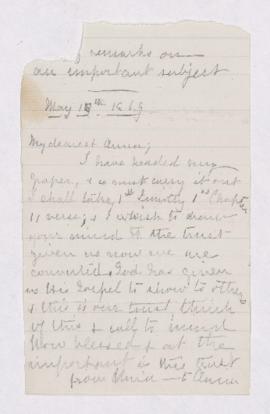 remarks on
an important subject
May 1869
My dearest Anna;
I have headed my
paper, & so must carry it out
I shall take, 1st Timothy 1st Chapter
11 verse; & I wish to draw
your mind to the trust
given us now we are
converted. God has given
us His Gospel to show to others
& this is our trust, think
of this & call to mind
How blessed & at the
important is this trust
from to Anna